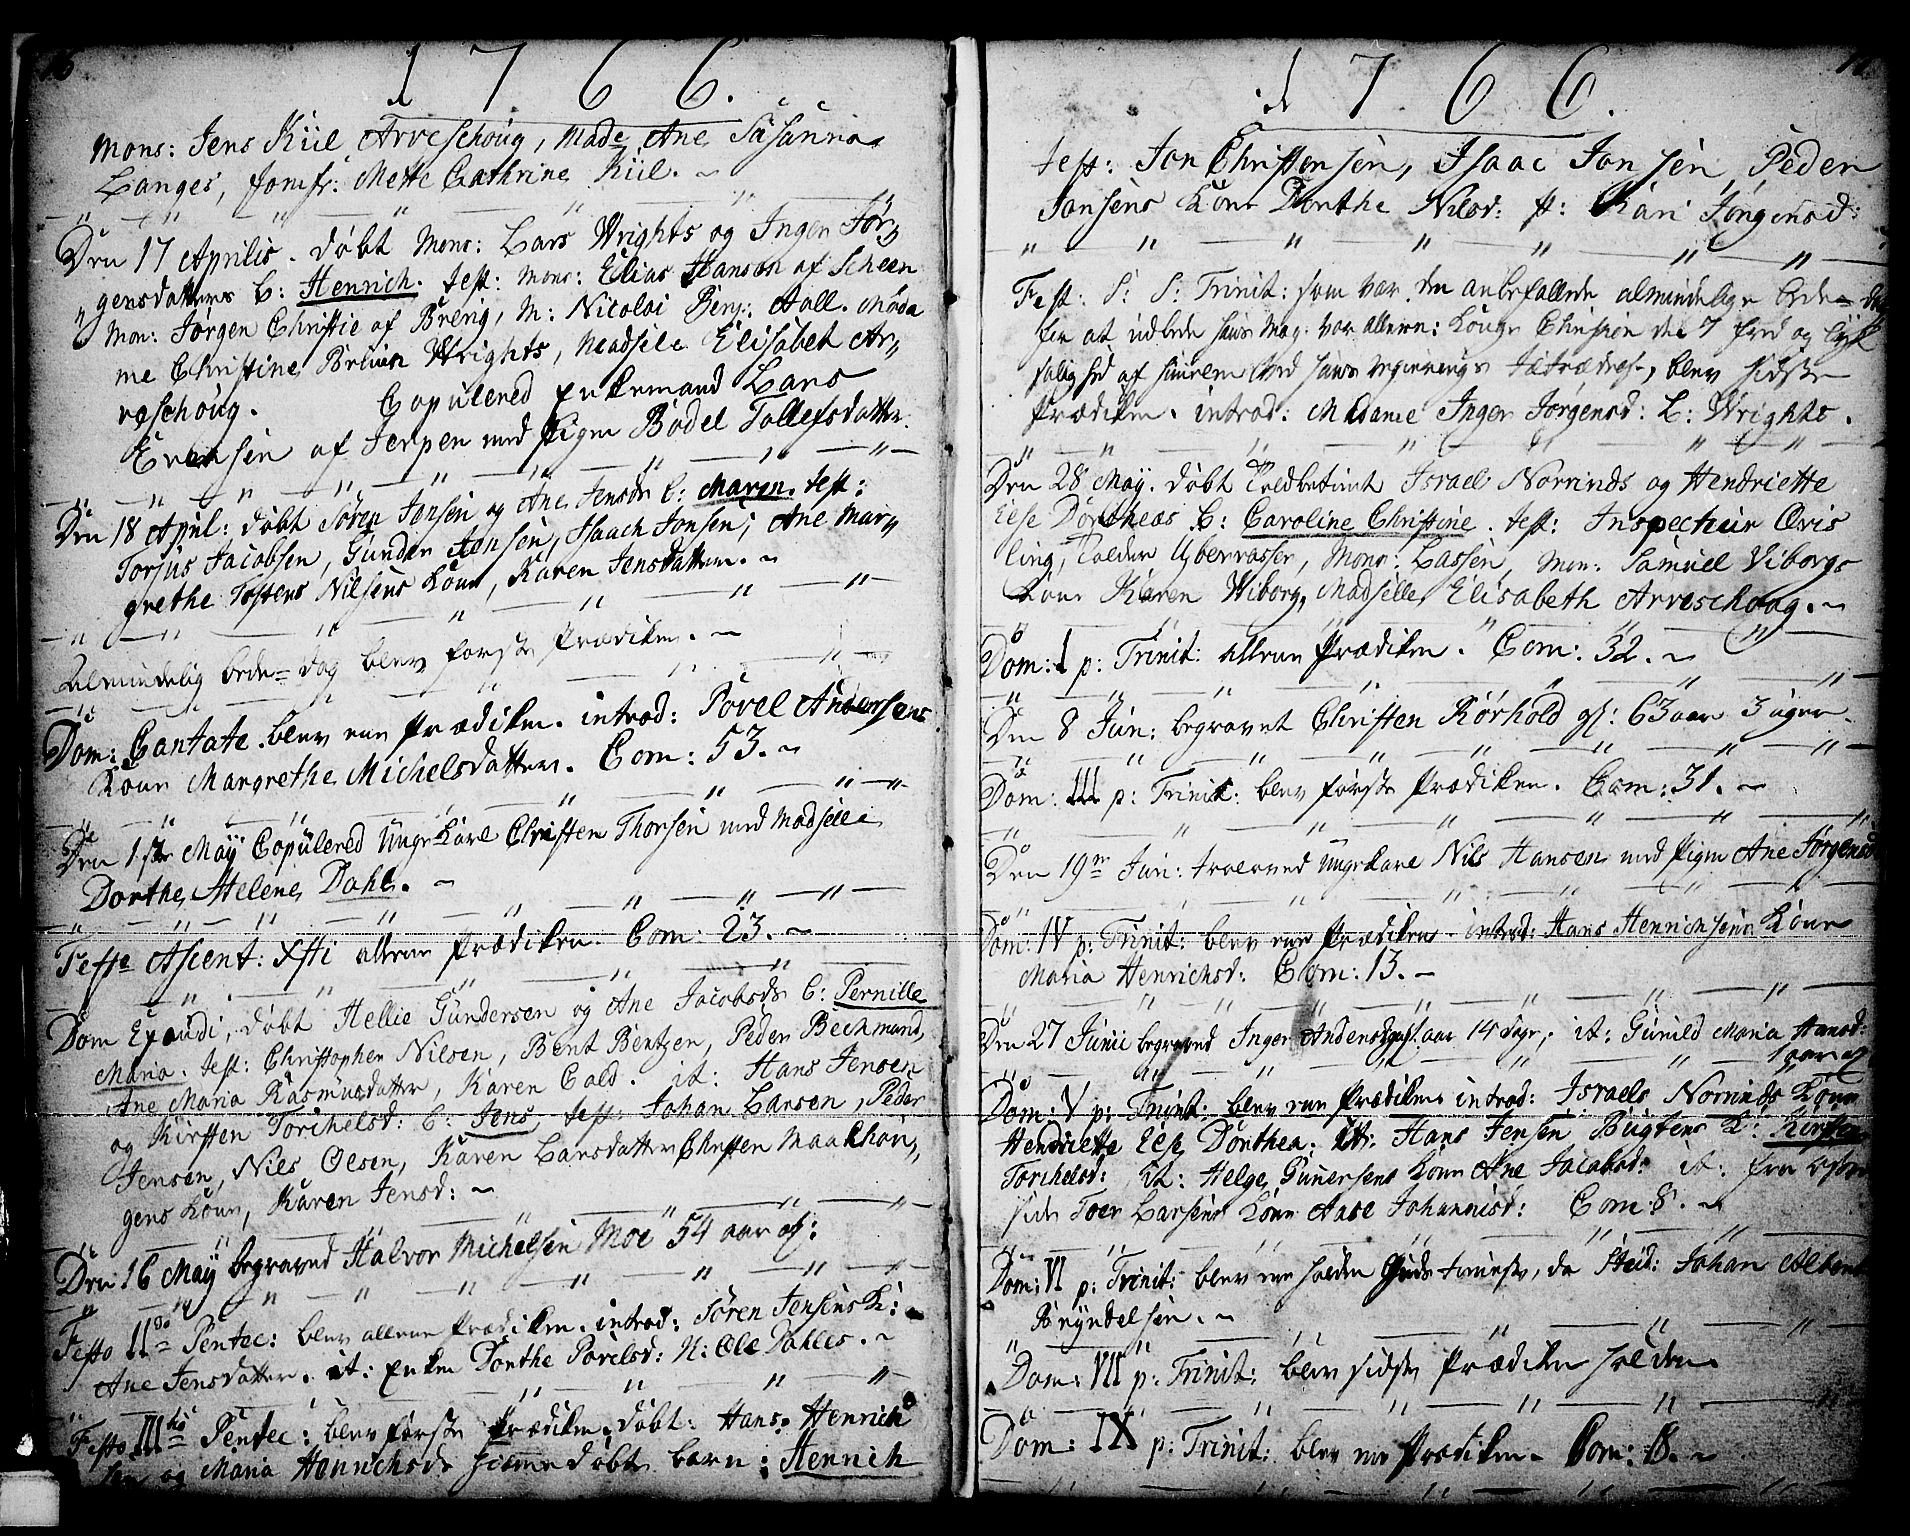 16
1766.
Mons: Jens Kiil Arveschoug, Made Ane Susanna
Langes, Jomfr: Mette Cathrine Kiil.
Den 17 Aprilis. døbt Mons: Lars Wrights og Inger Jør
gensdatters B: Henrich. test: Mons: Elias Hanson af Scheen
Mon: Jørgen Christie af Brevig, M: Nicolai Benj: Aall. Mada
me Christine Bruun Wrights, Madselle Elisabet Ar
veschoug. Copulered Enkemand Lars
Evensen af Jerpen med Pigen Bodel Tollefsdatter.
Den 18 April: døbt Søren Jensen og Ane Jensdr B: Maren. test:
Torjus Jacobsen, Gunder Jensen, Isaach Jonsen, Ane Mar
grethe Tostens Nilsens Kone, Karen Jensdatter.
Almindelig bede=dag blev første Prædiken.
Dom: Cantate. blev een Prædiken. introd: Povel Andersens
Kone Margrethe Michelsdatter. Com: 53.
Den 1ste Maÿ Copulered Ungekarl Christen Thorsen med Madselle
Dorthe Helene Dahl.
Festo Ascent: Xsti allene Prædiken. Com: 23.
Dom Exaudi, døbt Hellie Gundersen og Ane Jacobsdr B: Pernille
Maria. test: Christopher Nilsen, Bent Bentzen, Peder Bechmand,
Ane Maria Rasmusdatter, Karen Cold. it: Hans Jensen
og Kirsten Torchelsd: B: Jens, test: Johan Larsen, Peder
Jensen, Niels Olsen, Karen Larsdatter Christen Maachou
gens Kone, Karen Jensd:
Den 16 Maÿ begraved Halvor Michelsen Moe 54 aar gl:
Festo IIdo Pentec: blev allene Prædiken. introd: Søren Jensens K:
Ane Jensdatter. it: Enken Dorthe Povelsd: K: Ole Dahles.
Festo IIItio Pentec: blev første Prædiken. døbt: Hans Henrich
sen og Maria Henrichsdr hiemedøbte barn: Henrich
1766.
test: Jon Christensen, Isaac Jonsen, Peder
Jonsens Kone Dorthe Nilsd: Kari Jørgensd:
Fest: S: S: Trinit: som var den anbefallede almindelige bede=dag
for at udbede hans May: vor allern: Konge Christien den 7 fred og lyk
salighed af himlen ved hans Regierings tiltrædelse, blev sidste
Prædiken. introd: Madame Inger Jørgensd: L: Wrights.
Den 28 Maÿ. døbt Toldbetient Israel Norrinds og Hendriette
Else Dortheas B: Caroline Christine. test: Inspecteur Qvis
ling, Tolder Mons: Lassen, Mon: Samuel Viborgs
Kone Karen Wiborg, Madselle Elisabeth Arveschoug.
Dom: I p: Trinit: allene Prædiken. Com: 32.
Den 8 Jun: begravet Christen Rørhold gl: 63 aar 3 uger
Dom: III p: Trinit: blev første Prædiken. Com: 31.
Den 19de Jun: troloved Ungekarl Nils Hansen med Pigen Ane Jørgensd
Dom: IV p: Trinit: blev een Prædiken introd: Hans Henrichsens Kone
Maria Henrichsd: Com: 13.
Den 27 Junii begraved Inger aar 14 dage; it: Gunild Maria Hansd:
1 aar gl
Dom: V p: Trinit: blev een Prædiken introd: Israels Norrinds Kone
Hendriette Else Dorthea: it: Hans Jensen Bugtens K: Kirsten
Torchelsd: it: Helge Gunersens Kone Ane Jacobsd: it: fra
side Toer Larsens Kone Aase Johannisd: Com: 8.
Dom: VI p: Trinit: blev een holden Guds tieneste, da Stud: Johan Albert
Bryndelsen.
Dom: VII p: Trinit: blev sidste Prædiken holden.
Dom: IX p: Trinit: blev een Prædiken. Com: 8.